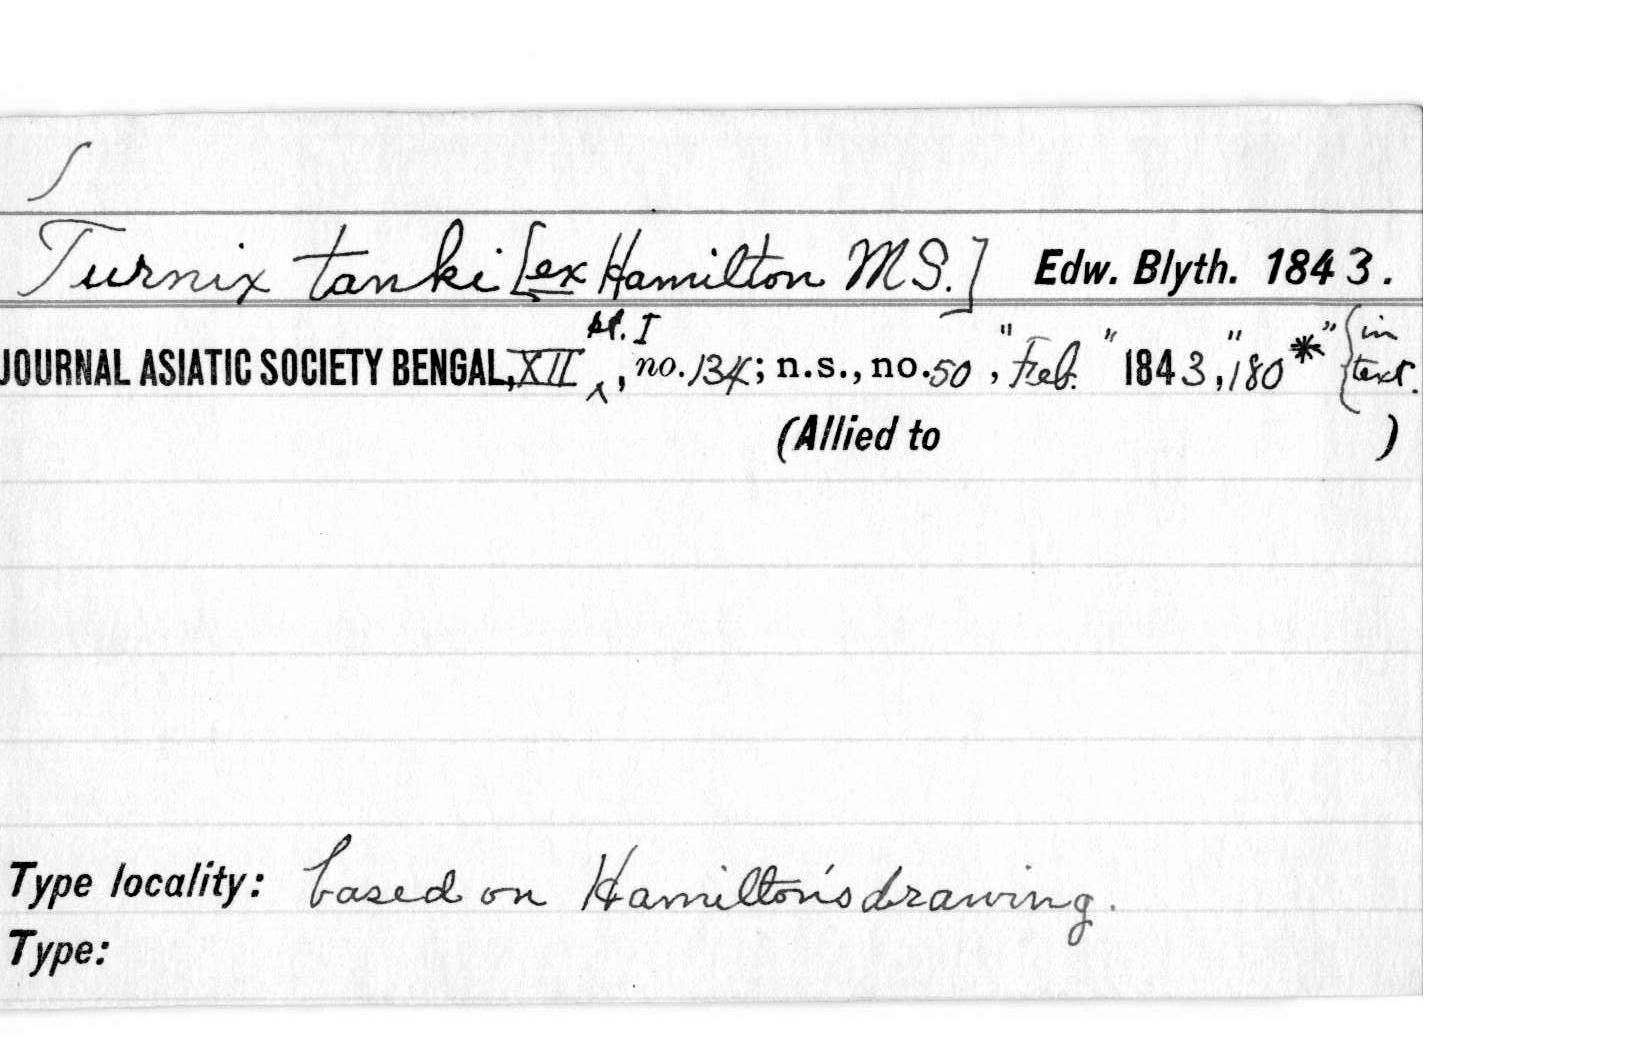 S
Turnix tanki [ex Hamilton MS.] Edw. Blyth. 1843.
pt. I
JOURNAL ASIATIC SOCIETY BENGAL, XII ^, no. 134; n.s., no. 50, "Feb." 1843, "180*" {in text.
(Allied to )
Type locality: based on Hamilton's drawing.
Type: